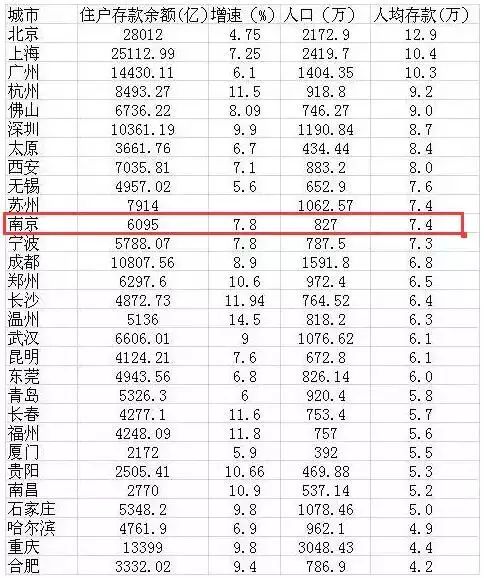 城市 住户存款余额(亿) 增速（%） 人口（万） 人均存款(万)
北京 28012 4.75 2172.9 12.9
上海 25112.99 7.25 2419.7 10.4
广州 14430.11 6.1 1404.35 10.3
杭州 8493.27 11.5 918.8 9.2
佛山 6736.22 8.09 746.27 9.0
深圳 10361.19 9.9 1190.84 8.7
太原 3661.76 6.7 434.44 8.4
西安 7035.81 7.1 883.2 8.0
无锡 4957.02 5.6 652.9 7.6
苏州 7914 1062.57 7.4
南京 6095 7.8 827 7.4
宁波 5788.07 7.8 787.5 7.3
成都 10807.56 8.9 1591.8 6.8
郑州 6297.6 10.6 972.4 6.5
长沙 4872.73 11.94 764.52 6.4
温州 5136 14.5 818.2 6.3
武汉 6606.01 9 1076.62 6.1
昆明 4124.21 7.6 672.8 6.1
东莞 4943.56 6.8 826.14 6.0
青岛 5326.3 6 920.4 5.8
长春 4277.1 11.6 753.4 5.7
福州 4248.09 11.8 757 5.6
厦门 2172 5.9 392 5.5
贵阳 2505.41 10.66 469.88 5.3
南昌 2770 10.9 537.14 5.2
石家庄 5348.2 9.8 1078.46 5.0
哈尔滨 4761.9 6.9 962.1 4.9
重庆 13399 9.8 3048.43 4.4
合肥 3332.02 9.4 786.9 4.2